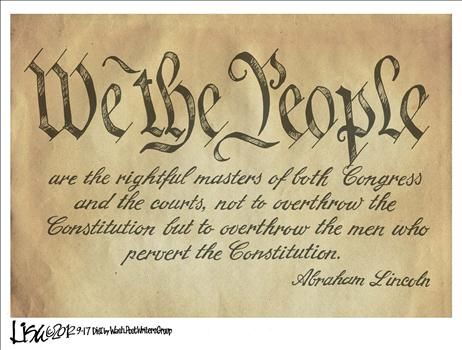 We the People
are the rightful masters of both Congress
and the courts, not to overthrow the
Constitution but to overthrow the men who
pervert the Constitution.
Abraham Lincoln
Lisa ©2012 9-17 Dist by Wash Post Writers Group